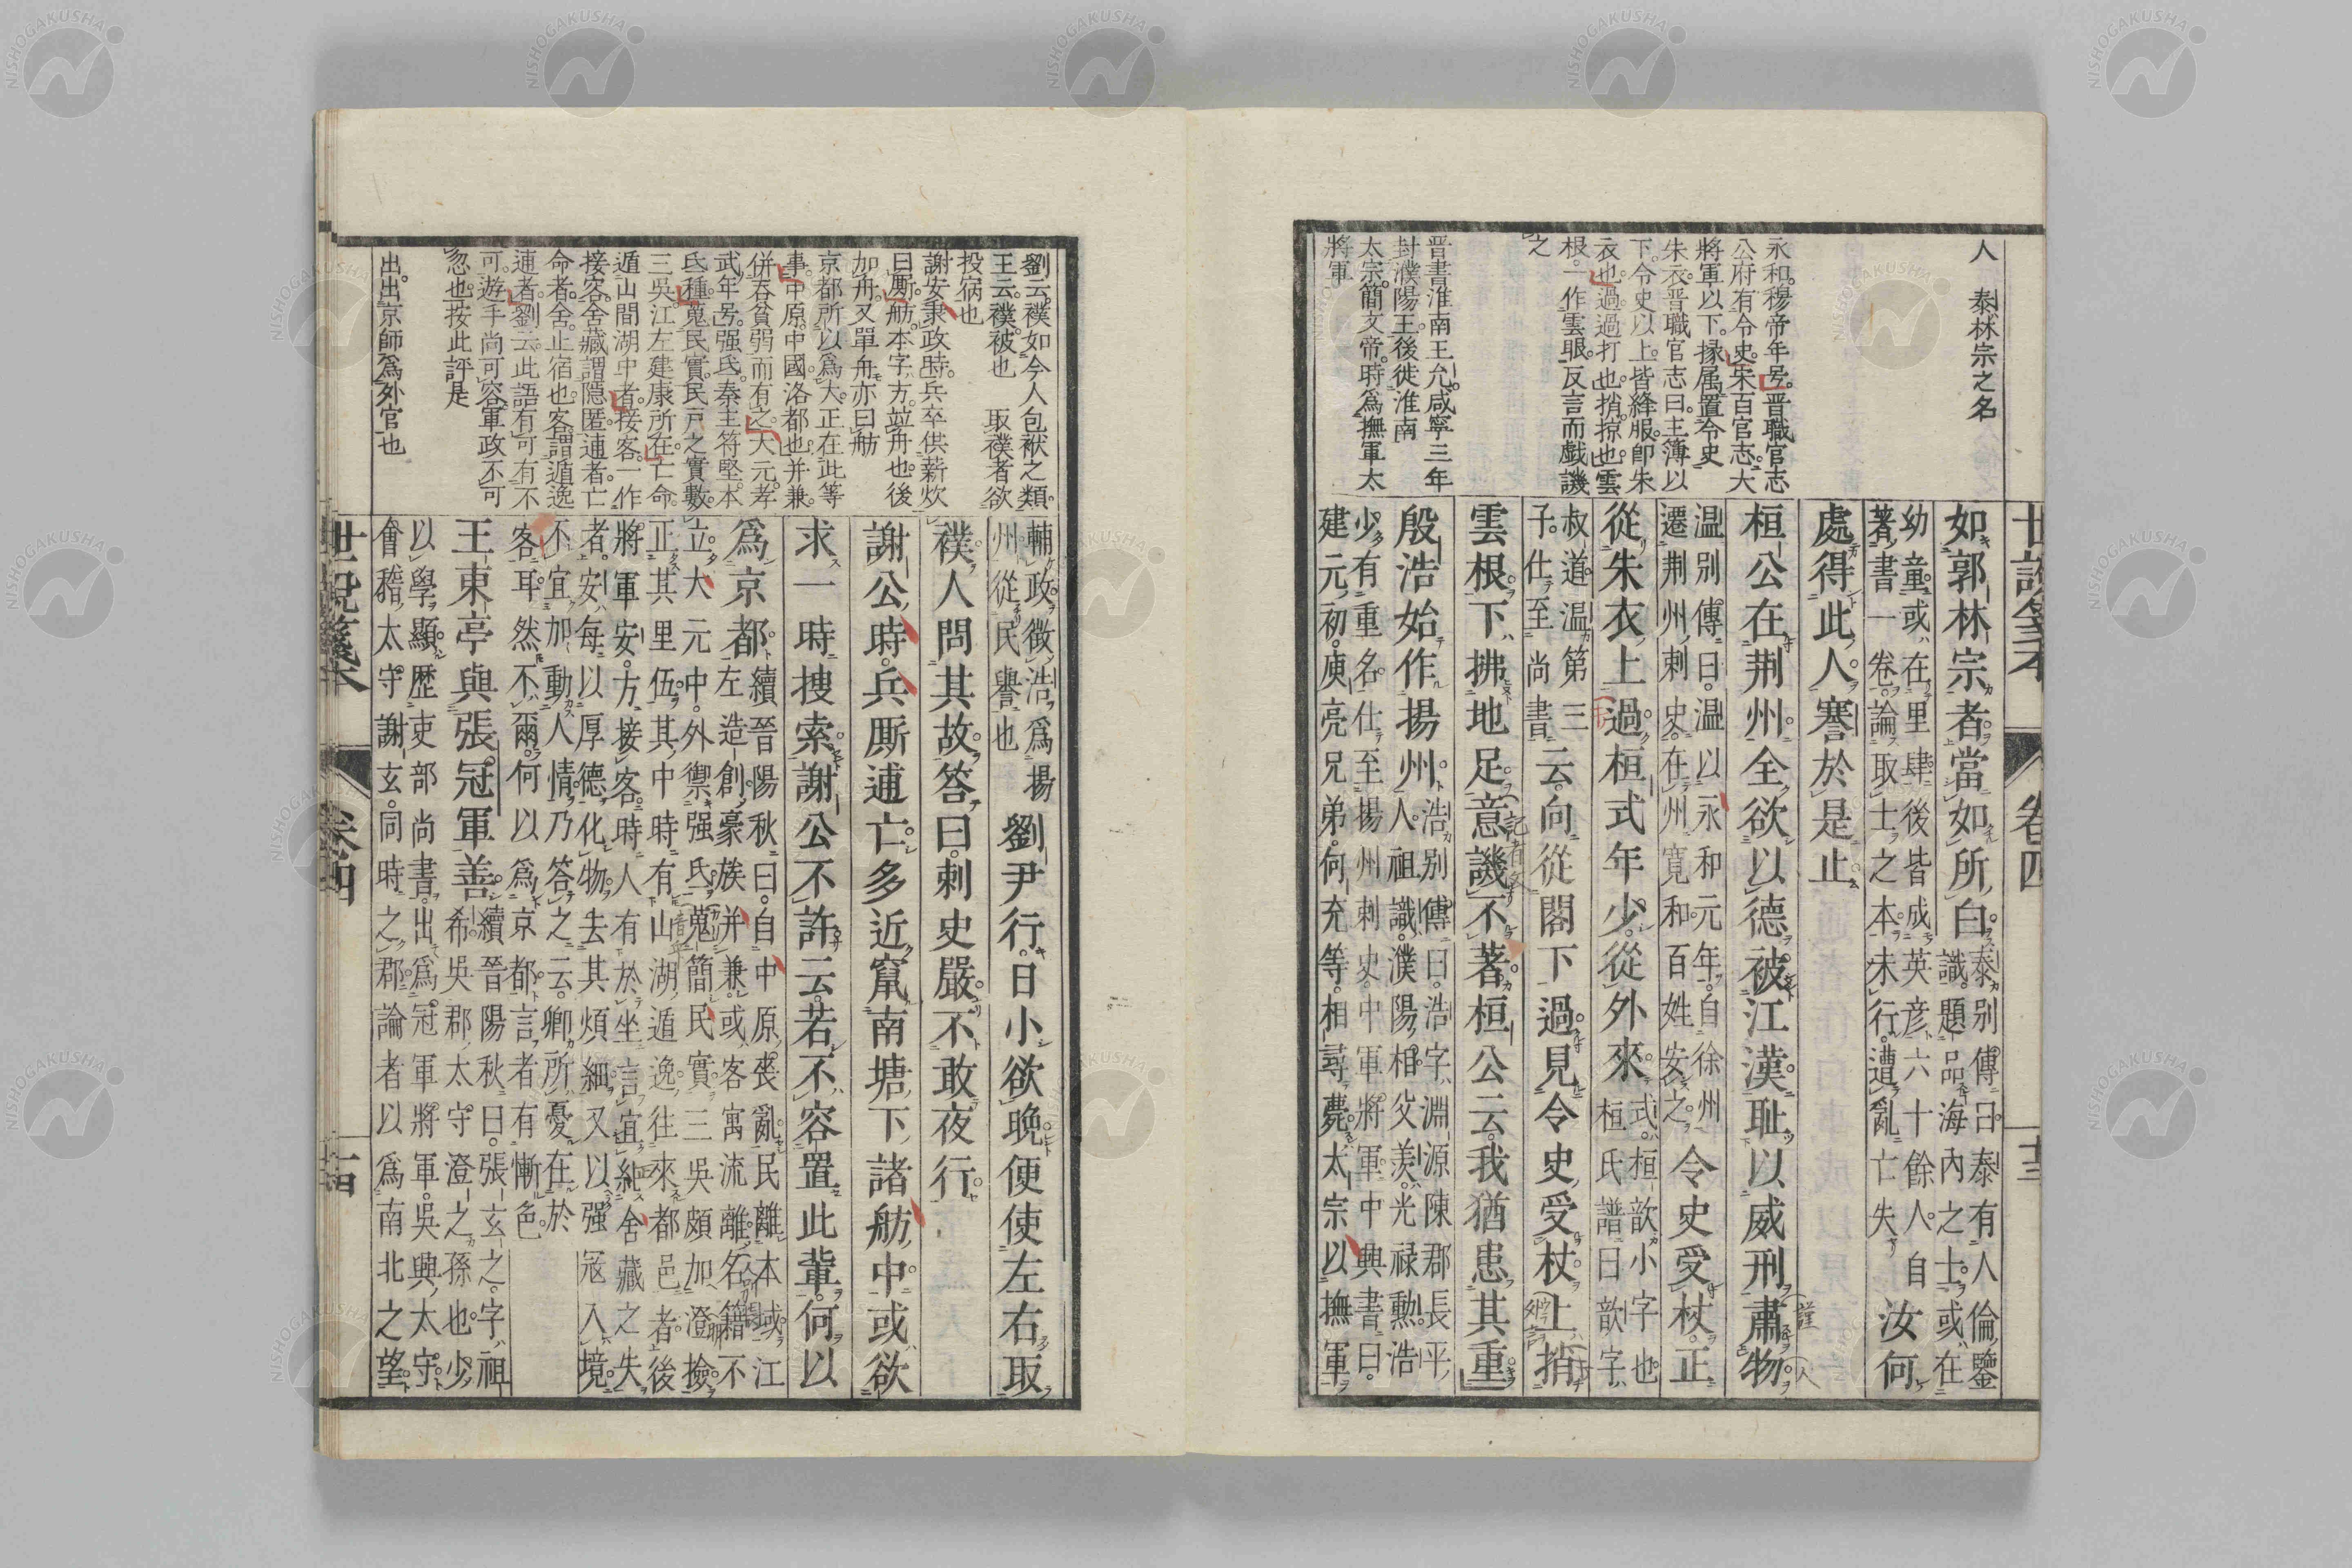 人　泰林宗之名
永和穆帝年号晋職官志
公府有令史宋百官志大
將軍以下掾属置令史
朱衣晋職官志曰主簿以
下令史以上皆絳服即朱
衣也過過打也捎掠也雲
根一作雲眼反言而戯譏
之
晋書淮南王允咸寧三年
封濮陽王後徙淮南
太宗簡文帝時爲撫軍太
將軍
世説箋本
卷四
十三
如郭林宗者當如所白
泰別傳曰泰有人倫鑒
識題品海內之士或在
幼童或在里肆後皆成英彦六十餘人自
著書一卷論取士之本未行遭亂亡失
汝何
處得此人謇於是止
桓公在荆州全欲以德被江漢耻以威刑肅物
温別傳曰温以永和元年自徐州
遷荆州刺史在州寛和百姓安之
令史受杖正
從朱衣上過桓式年少從外來
式桓歆小字也
桓氏譜曰歆字
叔道温第三
子仕至尚書
云向從閣下過見令史受杖上捎
雲根下拂地足意譏不著桓公云我猶患其重
殷浩始作揚州
浩別傳曰浩字淵源陳郡長平
人祖識濮陽相父羡光禄勲浩
少有重名仕至揚州刺史中軍將軍中興書曰
建元初庾亮兄弟何充等相尋薨太宗以撫軍
劉云襆如今人包袱之類
王云襆被也　取襆者欲
投宿也
謝安秉政時兵卒供薪炊
曰厮舫本字方竝舟也後
加舟又單舟亦曰舫
京都所以爲大正在此等
事中原中國洛都也并兼
併吞貧弱而有之大元孝
武年号强氐秦主苻堅本
氐種蒐民實民戸之實數
三吳江左建康所在亡命
遁山間湖中者接客一作
接客舍藏謂隱匿逋者亡
命者舍止宿也客謂遁逸
逋者劉云此語有可有不
可遊手尚可容軍政不可
忽也按此評是
出出京師爲外官也
輔政徵浩爲揚
州從民譽也
劉尹行日小欲晩便使左右取
襆人問其故答曰刺史嚴不敢夜行
謝公時兵厮逋亡多近竄南塘下諸舫中或欲
求一時搜索謝公不許云若不容置此輩何以
爲京都
續晉陽秋曰自中原喪亂民離本域江
左造創豪族并兼或客寓流離名籍不
立大元中外禦强氐蒐簡民實三吳頗加澄撿
正其里伍其中時有山湖遁逸往來都邑者後
將軍安方接客時人有於坐言宜糾舍藏之失
者安每以厚德化物去其煩細又以强寇入境
不宜加動人情乃答之云卿所憂在於
客耳然不爾何以爲京都言者有慚色
王東亭與張冠軍善
續晉陽秋曰張玄之字祖
希吳郡太守澄之孫也少
以學顯歷吏部尚書出爲冠軍將軍吳興太守
會稽太守謝玄同時之郡論者以爲南北之望
世説箋本
卷四
十四